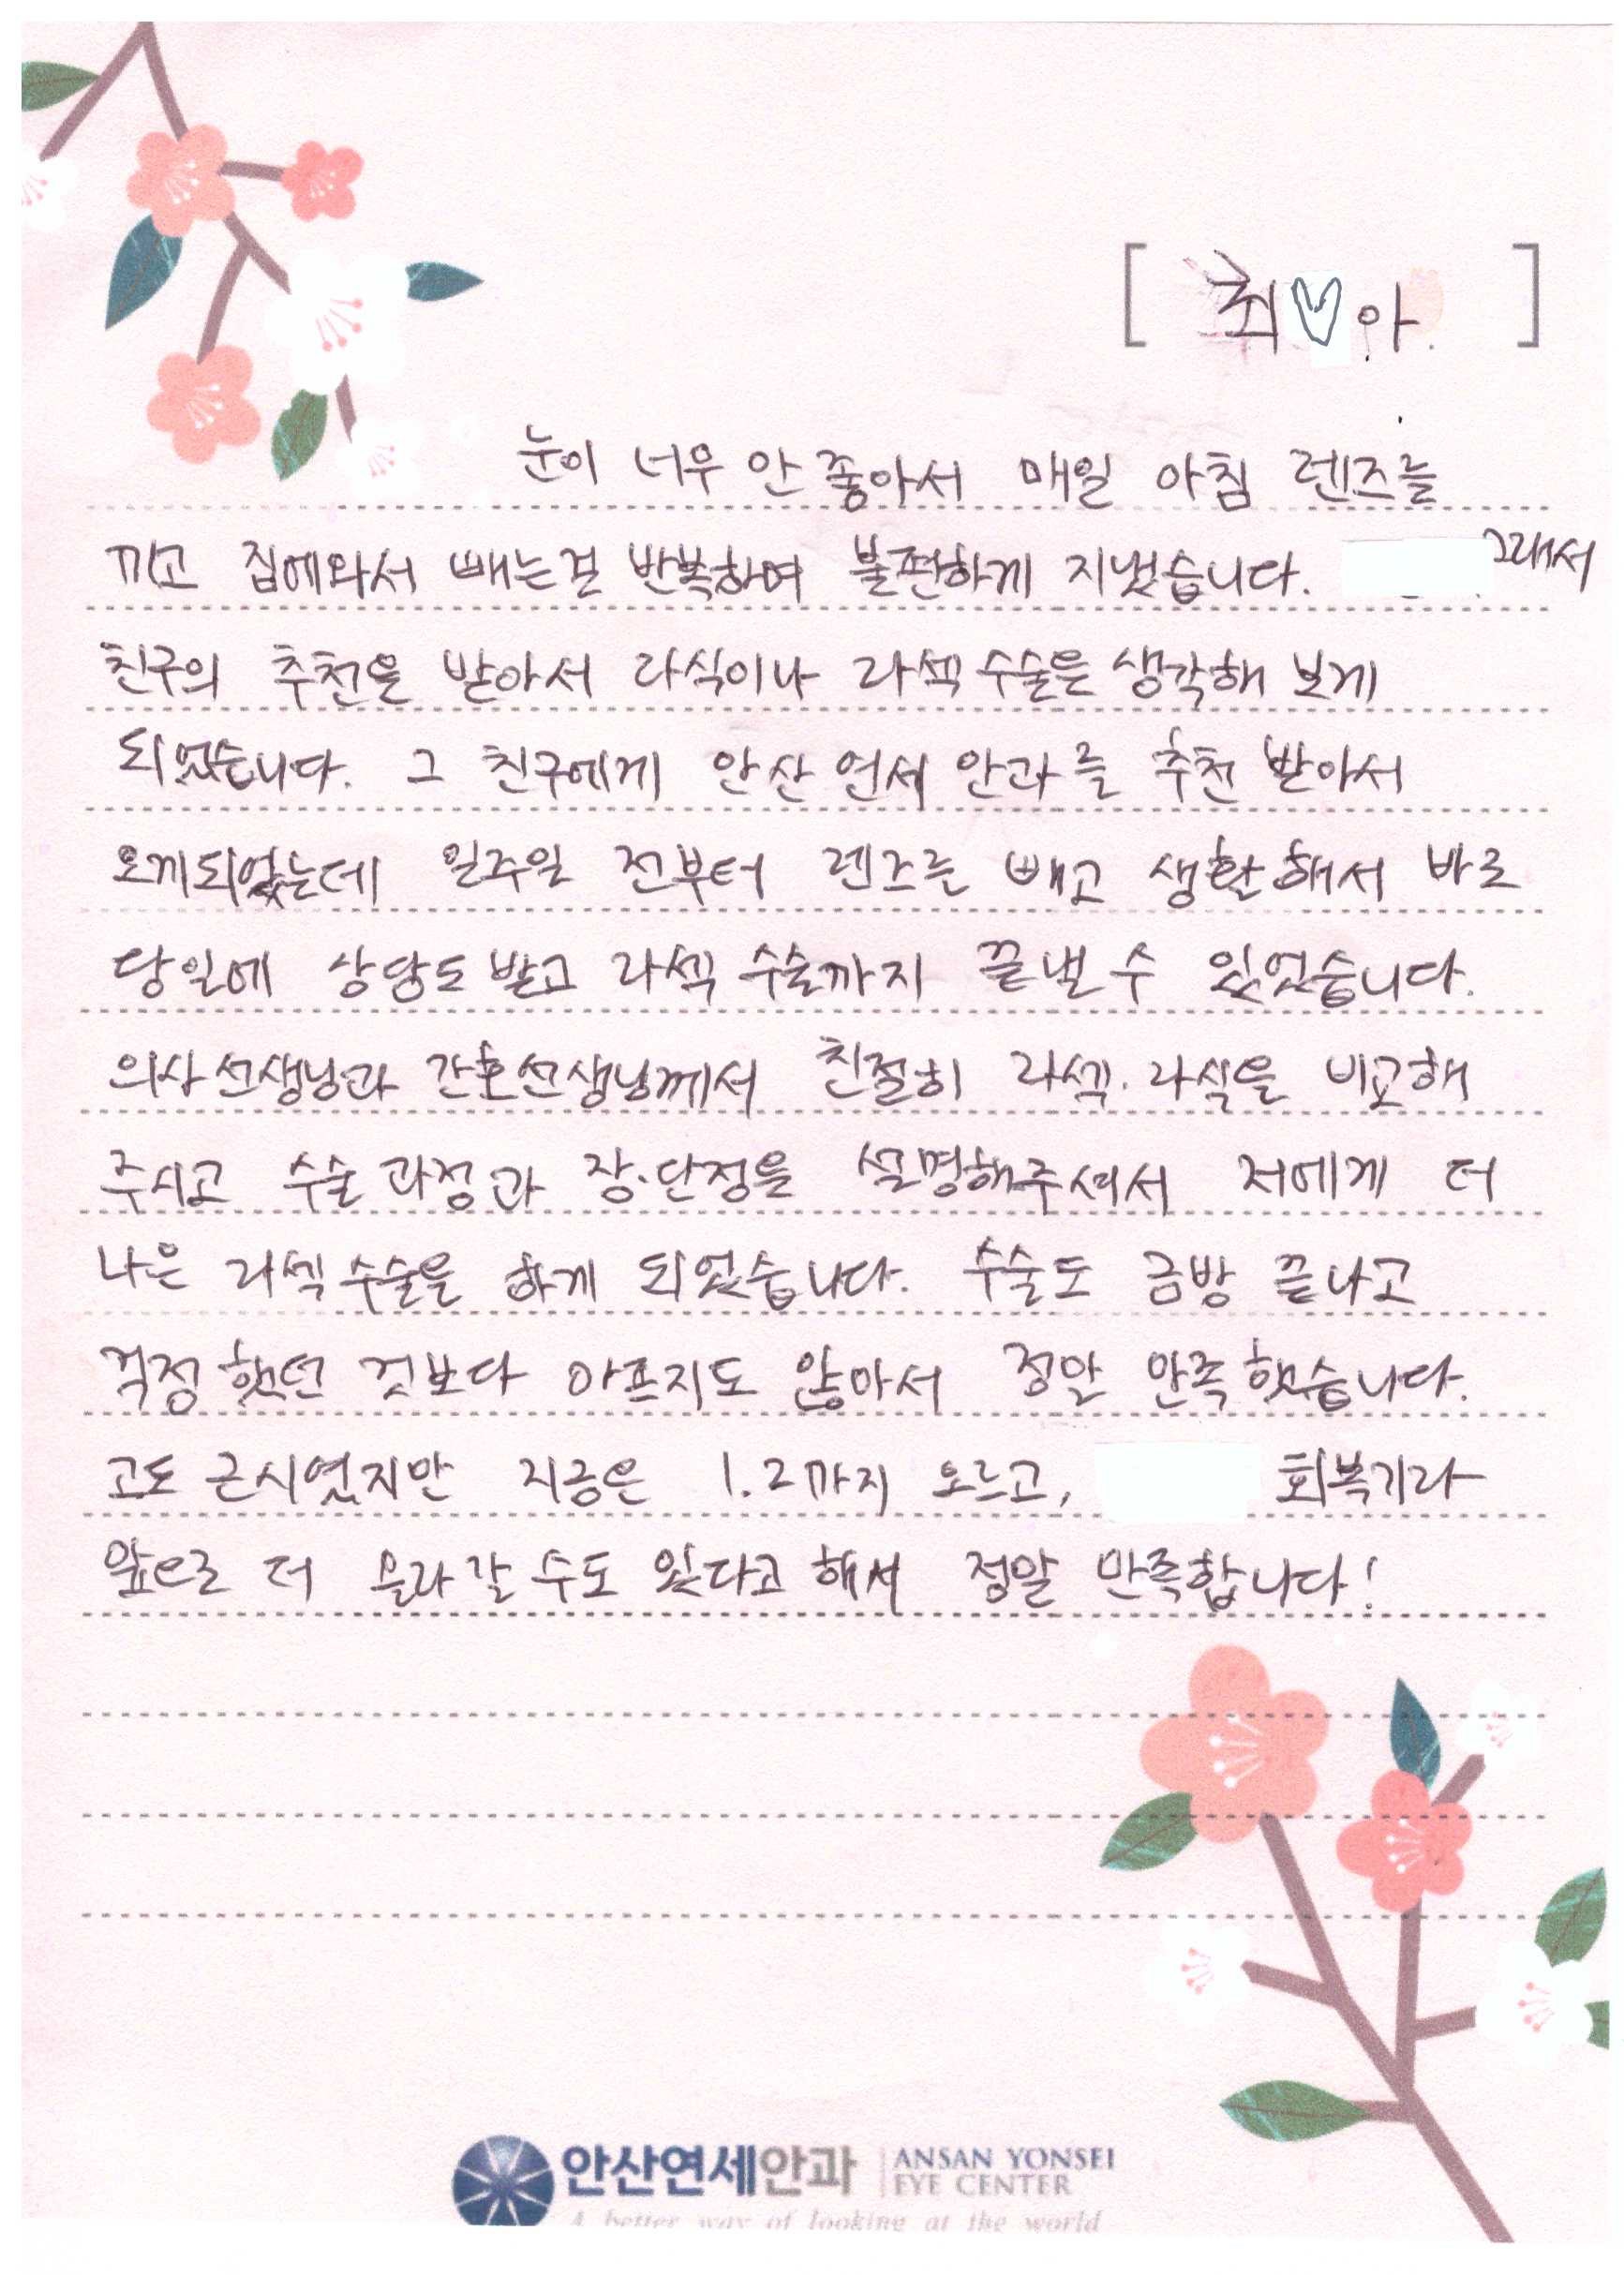 [ 최♡아 ]
눈이 너무 안 좋아서 매일 아침 렌즈를
끼고 집에와서 빼는걸 반복하며 불편하게 지냈습니다. 그래서
친구의 추천을 받아서 라식이나 라섹 수술을 생각해 보게
되었습니다. 그 친구에게 안산 연세 안과를 추천 받아서
오게되었는데 일주일 전부터 렌즈를 빼고 생활해서 바로
당일에 상담도 받고 라섹 수술까지 끝낼 수 있었습니다.
의사선생님과 간호선생님께서 친절히 라섹·라식을 비교해
주시고 수술 과정과 장·단점을 설명해주셔서 저에게 더
나은 라섹 수술을 하게 되었습니다. 수술도 금방 끝나고
걱정했던 것보다 아프지도 않아서 정말 만족했습니다.
고도 근시였지만 지금은 1.2까지 오르고, 회복기라
앞으로 더 올라갈 수도 있다고 해서 정말 만족합니다!
안산연세안과 ANSAN YONSEI
EYE CENTER
A better way of looking at the world